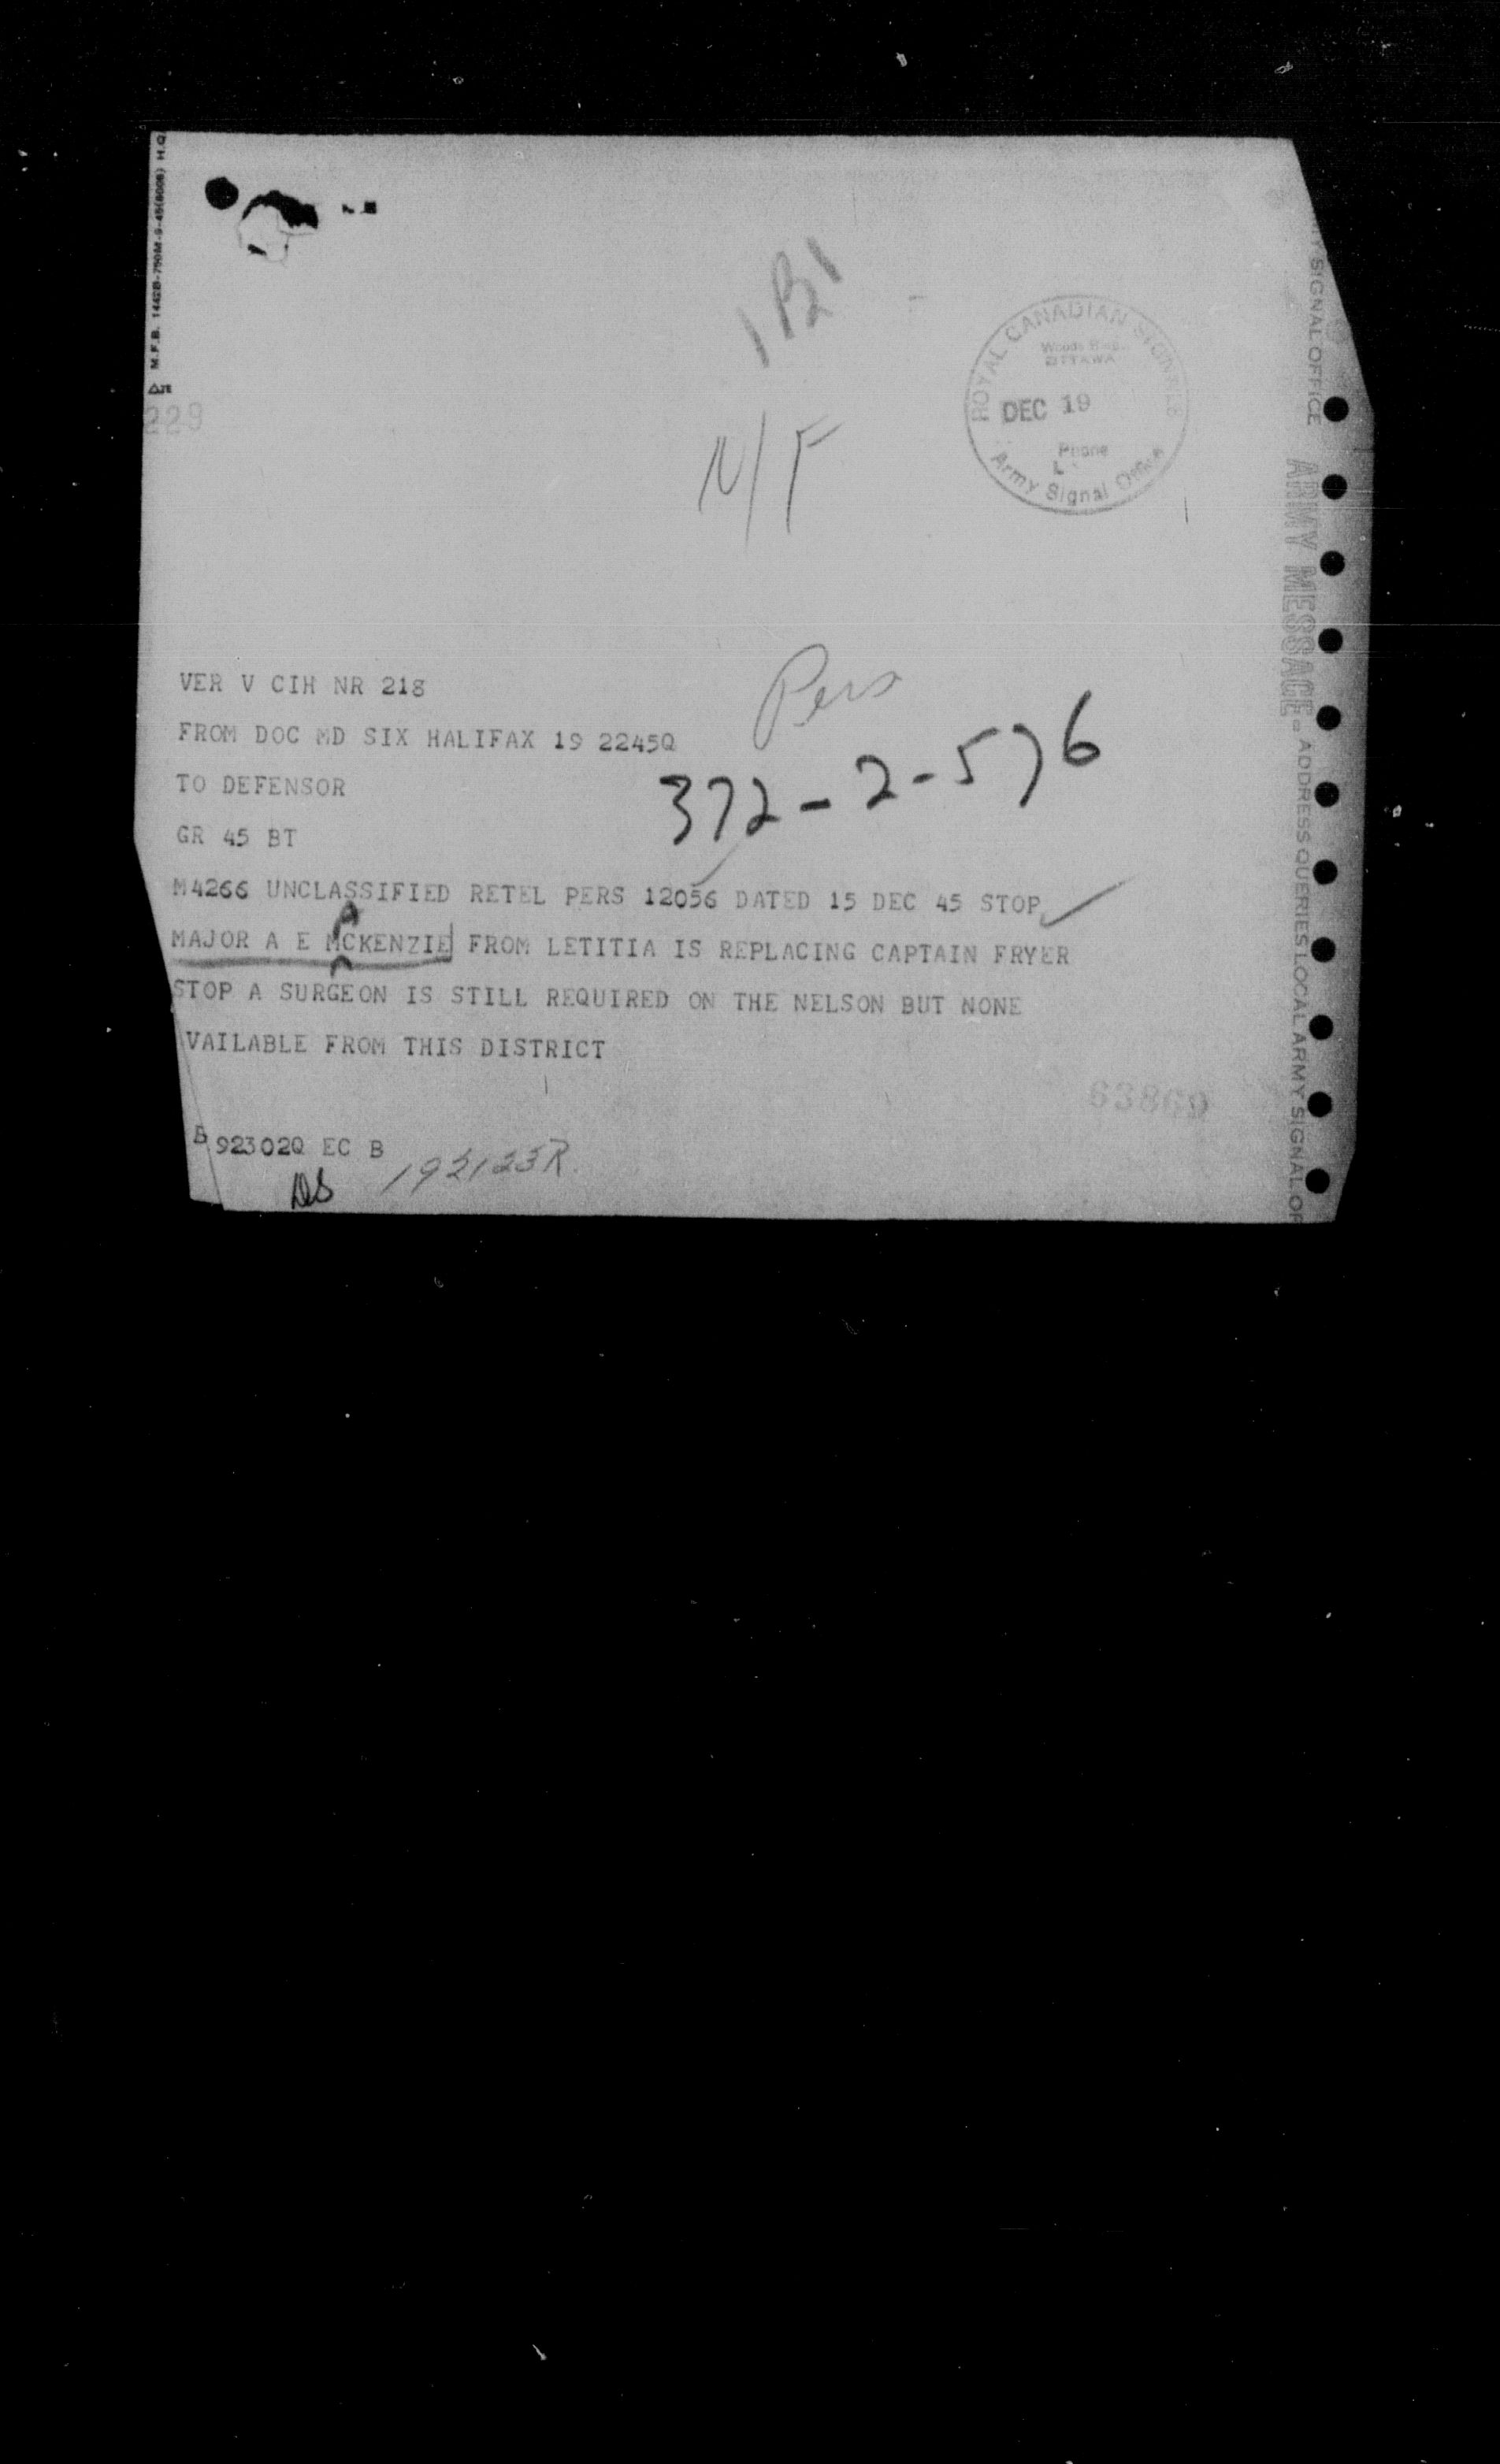 M.F.B. 1442B-750M-9-45(6008) H.Q.
229
1B1
N/F
ROYAL CANADIAN SIGNALS
Woods Bldg.
OTTAWA
DEC 19
Phone
Army Signal Office
SIGNAL OFFICE
ARMY MESSAGE - ADDRESS QUERIES LOCAL ARMY SIGNAL OF
VER V CIH NR 218
Pers
FROM DOC MD SIX HALIFAX 19 2245Q
372-2-576
TO DEFENSOR
GR 45 BT
M4266 UNCLASSIFIED RETEL PERS 12056 DATED 15 DEC 45 STOP
A
MAJOR A E MCKENZIE FROM LETITIA IS REPLACING CAPTAIN FRYER
STOP A SURGEON IS STILL REQUIRED ON THE NELSON BUT NONE
VAILABLE FROM THIS DISTRICT
63869
B 92302Q EC B
192123R